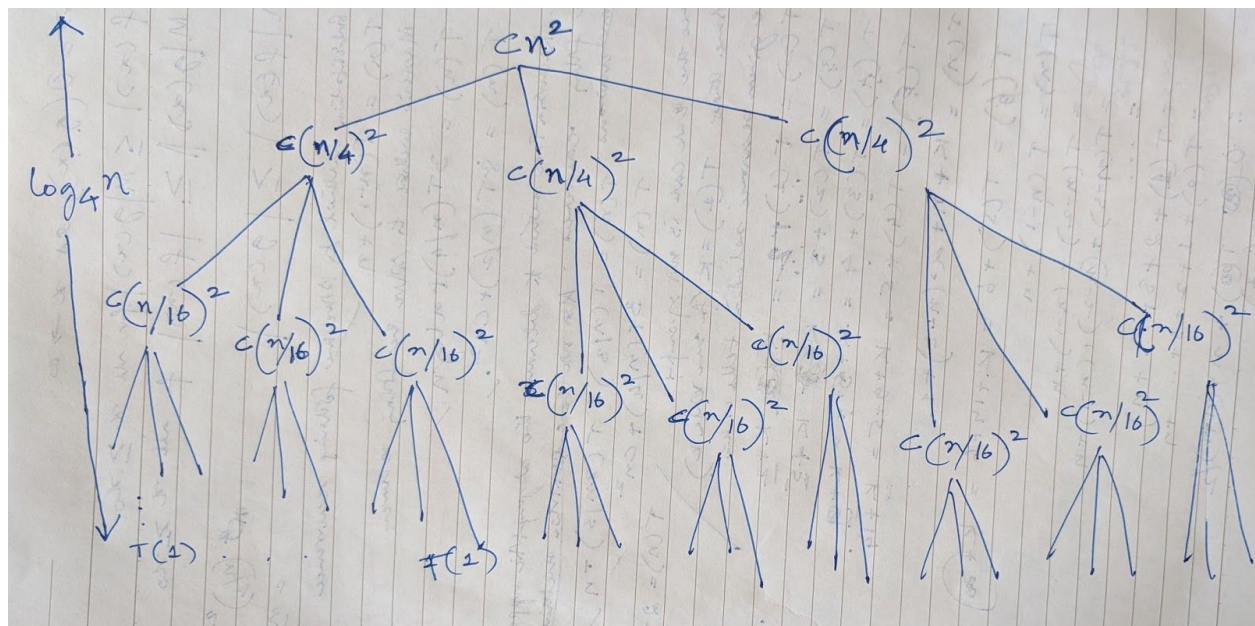 cn²
c(n/4)² c(n/4)² c(n/4)²
log₄n
c(n/16)² c(n/16)² c(n/16)² c(n/16)² c(n/16)² c(n/16)² c(n/16)² c(n/16)² c(n/16)²
T(1) . . . T(1)